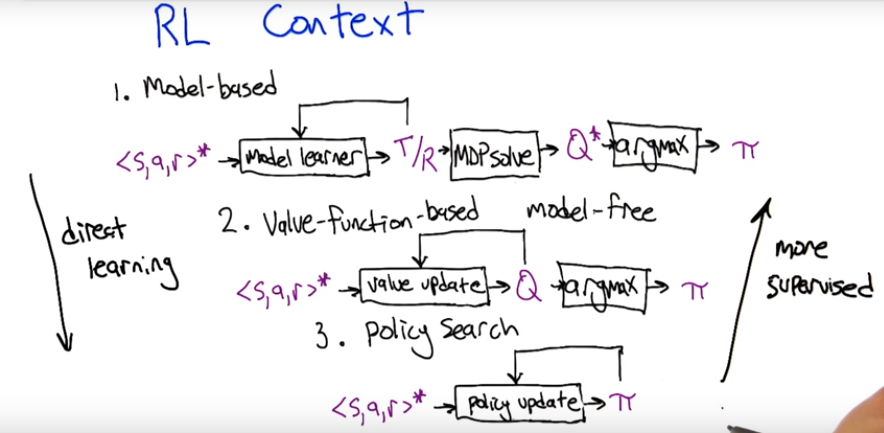 RL Context
1. Model-based
<s,a,r>* → model learner → T/R → MDP solve → Q* → argmax → π
direct
learning
2. Value-function-based model-free
<s,a,r>* → value update → Q → argmax → π
more
supervised
3. policy search
<s,a,r>* → policy update → π